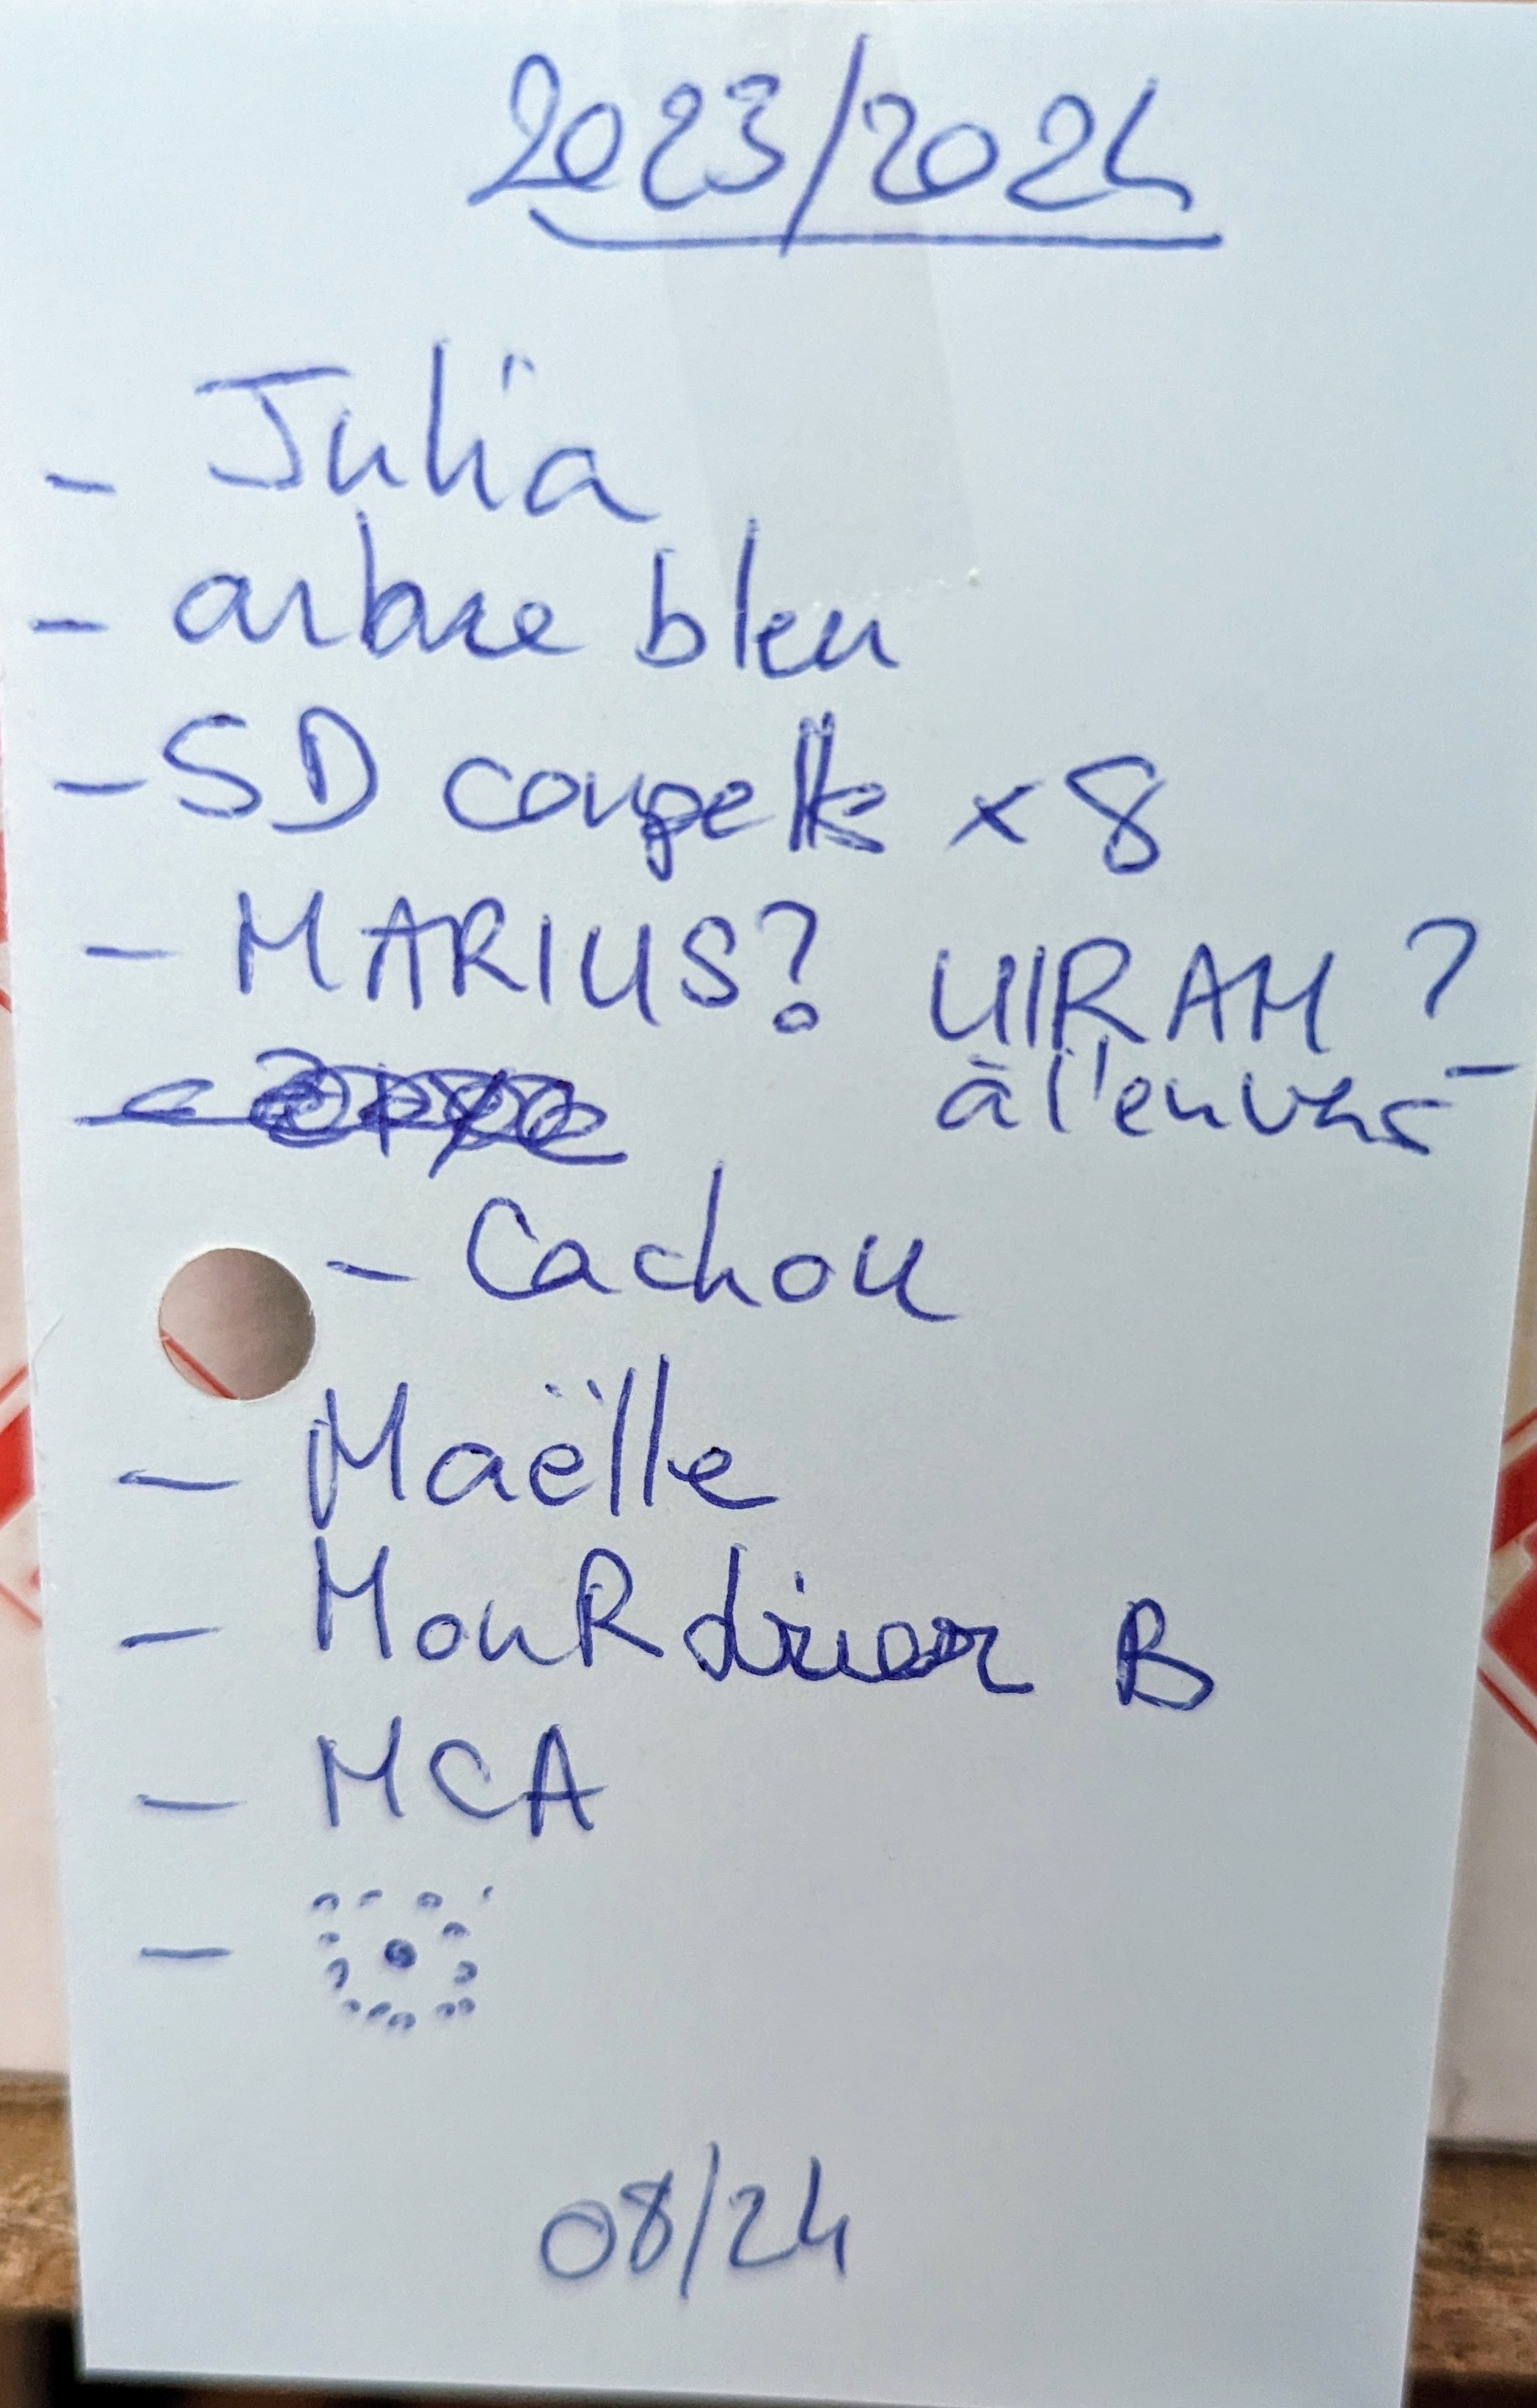 2023/2024
- Julia
- arbre bleu
- SD coupelles x 8
- MARIUS? UIRAM?
à l'envers
- Cachou
- Maëlle
- MouR B
- MCA
-
08/24